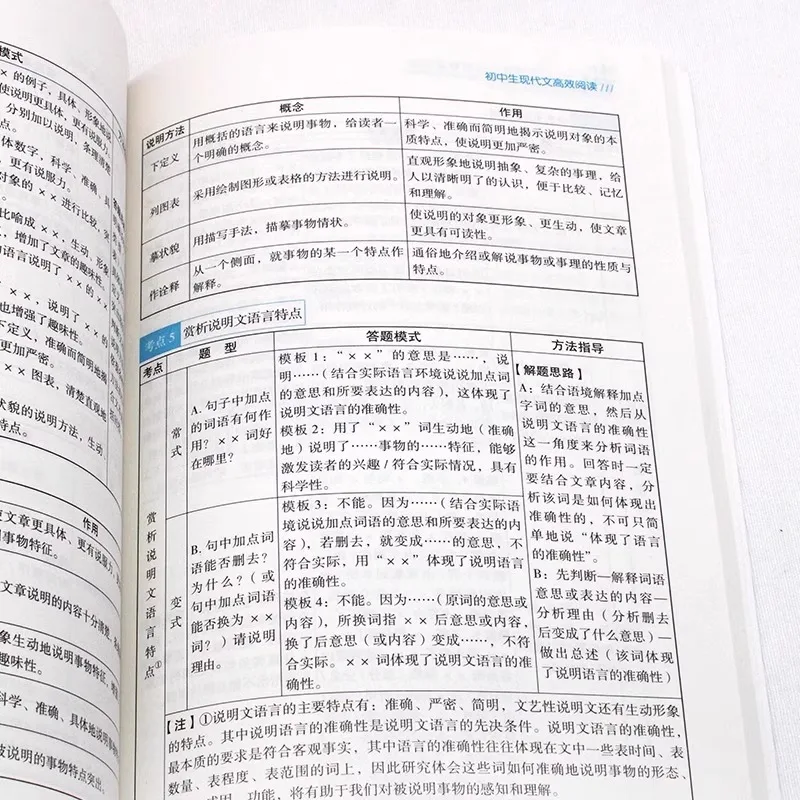 模式
××的例子，具体、形象地
使说明更具体、更有说服力。
分别加以说明，条理清晰
特点。
体数字，科学、准确、具
，更有说服力。
对象的××进行比较，突
比喻成××，生动、形象
，增加了文章的趣味性。
的语言说明了××的×
××，说明了××的
也增强了趣味性。
下定义，准确而简明地
更加严密。
××图表，清楚直观地
状貌的说明方法，生动、
特点。
作用
使文章更具体、更有说服力
事物特征。
文章说明的内容十分清晰，
象生动地说明事物特征，增
趣味性。
科学、准确、具体地说明事物
被说明的事物特点突出。
初中生现代文高效阅读
说明方法 概念 作用
下定义 用概括的语言来说明事物，给读者一 科学、准确而简明地揭示说明对象的本
个明确的概念。 质特点，使说明更加严密。
列图表 采用绘制图形或表格的方法进行说明。 直观形象地说明抽象、复杂的事理，给
人以清晰明了的认识，便于比较、记忆
和理解。
摹状貌 用描写手法，描摹事物情状。 使说明的对象更形象、更生动，使文章
更具有可读性。
作诠释 从一个侧面，就事物的某一个特点作 通俗地介绍或解说事物或事理的性质与
解释。 特点。
考点5 赏析说明文语言特点
考点 题型 答题模式 方法指导
赏析说明文语言特点①
常式
A. 句子中加点
的词语有何作
用？××词好
在哪里？
模板1：“××”的意思是……，说
明……（结合实际语言环境说说加点词
的意思和所要表达的内容），这体现了
说明文语言的准确性。
模板2：用了“××”词生动地（准确
地）说明了……事物的……特征，能够
激发读者的兴趣/符合实际情况，具有
科学性。
变式
B. 句中加点词
语能否删去？
为什么？（或
句中加点词语
能否换为××
词？）请说明
理由。
模板3：不能。因为……（结合实际语
境说说加点词语的意思和所要表达的内
容），若删去，就变成……的意思，不
符合实际，用“××”体现了说明语言
的准确性。
模板4：不能。因为……（原词的意思或
内容），所换词指××后意思或内容，
换了后意思（或内容）变成……，不符
合实际。××词体现了说明文语言的准
确性。
【解题思路】
A：结合语境解释加点
字词的意思，然后从
说明文语言的准确性
这一角度来分析词语
的作用。回答时一定
要结合文章内容，分
析该词是如何体现出
准确性的，不可只简
单地说“体现了语言
的准确性”。
B：先判断—解释词语
意思或表达的内容—
分析理由（分析删去
后变成了什么意思）—
做出总述（该词体现
了说明语言的准确性）
【注】①说明文语言的主要特点有：准确、严密、简明，文艺性说明文还有生动形象
的特点。其中说明语言的准确性是说明文语言的先决条件。说明文语言的准确性，
最本质的要求是符合客观事实，其中语言的准确性往往体现在文中一些表时间、表
数量、表程度、表范围的词上，因此研究体会这些词如何准确地说明事物的形态、
成因、功能，将有助于我们对被说明事物的感知和理解。